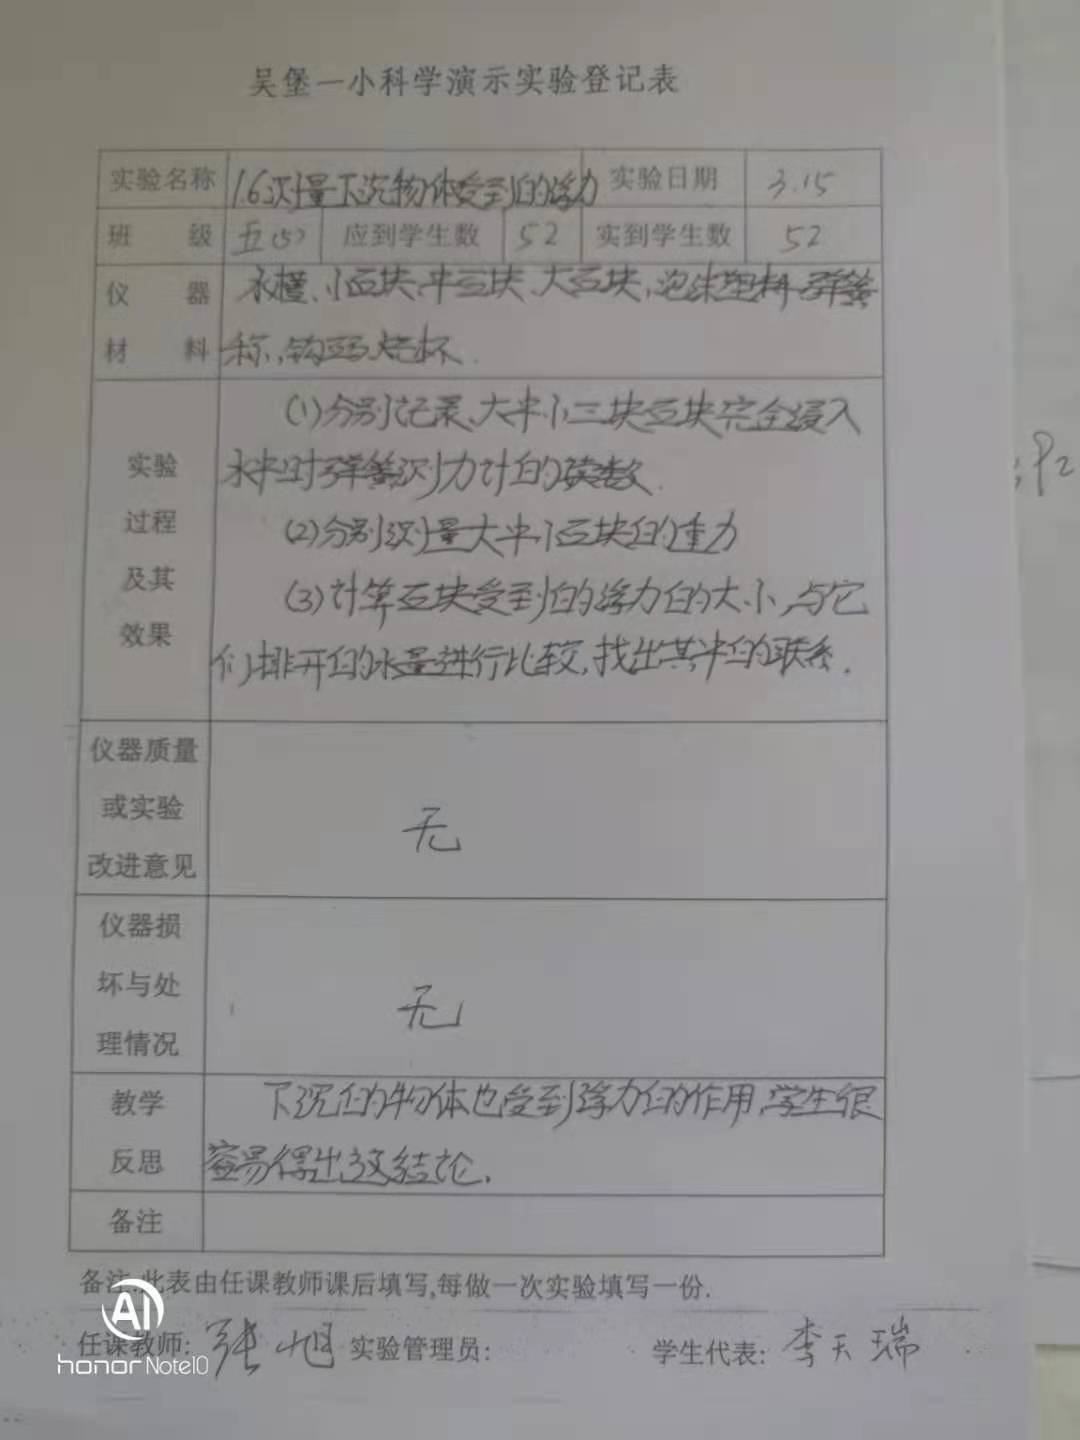 吴堡一小科学演示实验登记表
实验名称 1.6测量下沉物体受到的浮力 实验日期 3.15
班 级 五(5) 应到学生数 52 实到学生数 52
仪 器 水槽、小石块、中石块、大石块,泡沫塑料、弹簧
材 料 称、钩码、烧杯.
(1)分别记录、大中小三块石块完全浸入
实验 水中时弹簧测力计的读数.
过程 (2)分别测量大中小石块的重力
及其 (3)计算石块受到的浮力的大小,与它
效果 们排开的水量进行比较,找出其中的联系.
仪器质量
或实验 无
改进意见
仪器损
坏与处 无
理情况
教学 下沉的物体也受到浮力的作用,学生很
反思 容易得出这结论.
备注
备注:此表由任课教师课后填写,每做一次实验填写一份.
任课教师: 张旭 实验管理员: 学生代表: 李天瑞
AI
honor Note10